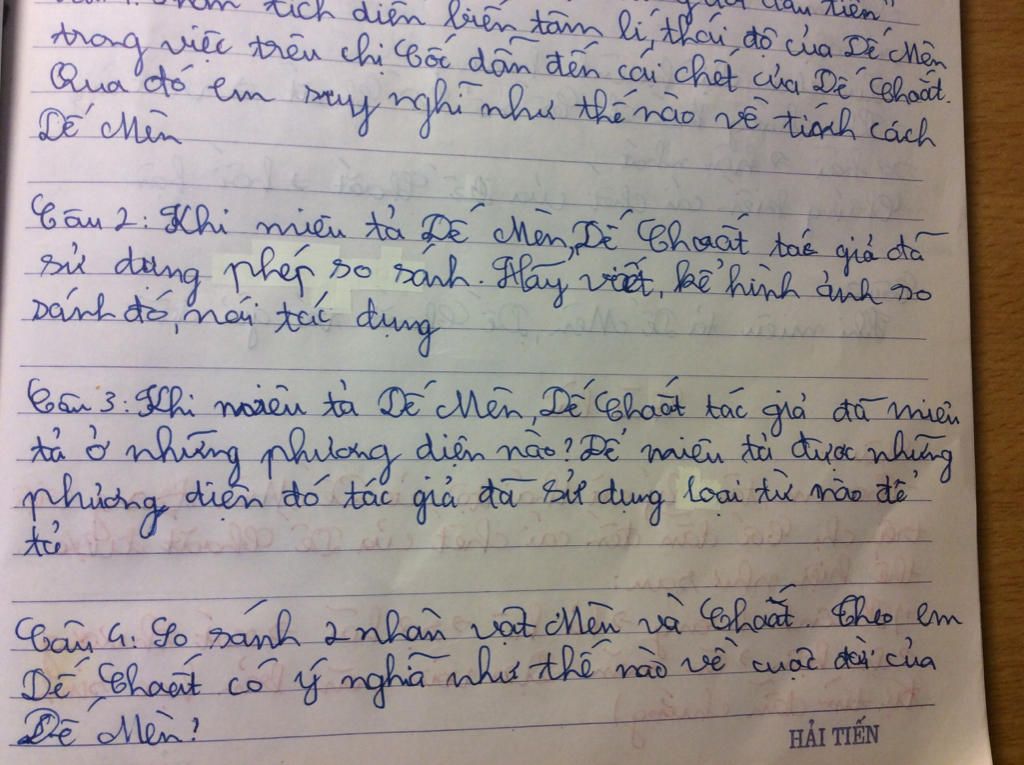 tích diễn biến tâm lí, thái độ của Dế Mèn
trong việc trêu chị Cốc dẫn đến cái chết của Dế Choắt.
Qua đó em suy nghĩ như thế nào về tính cách
Dế Mèn
Câu 2: Khi miêu tả Dế Mèn, Dế Choắt tác giả đã
sử dụng phép so sánh. Hãy viết, kể hình ảnh so
sánh đó, nói tác dụng
Câu 3: Khi miêu tả Dế Mèn, Dế Choắt tác giả đã miêu
tả ở những phương diện nào? Để miêu tả được những
phương diện đó tác giả đã sử dụng loại từ nào để
tả
Câu 4: So sánh 2 nhân vật Mèn và Choắt. Theo em
Dế Choắt có ý nghĩa như thế nào về cuộc đời của
Dế Mèn?
HẢI TIẾN